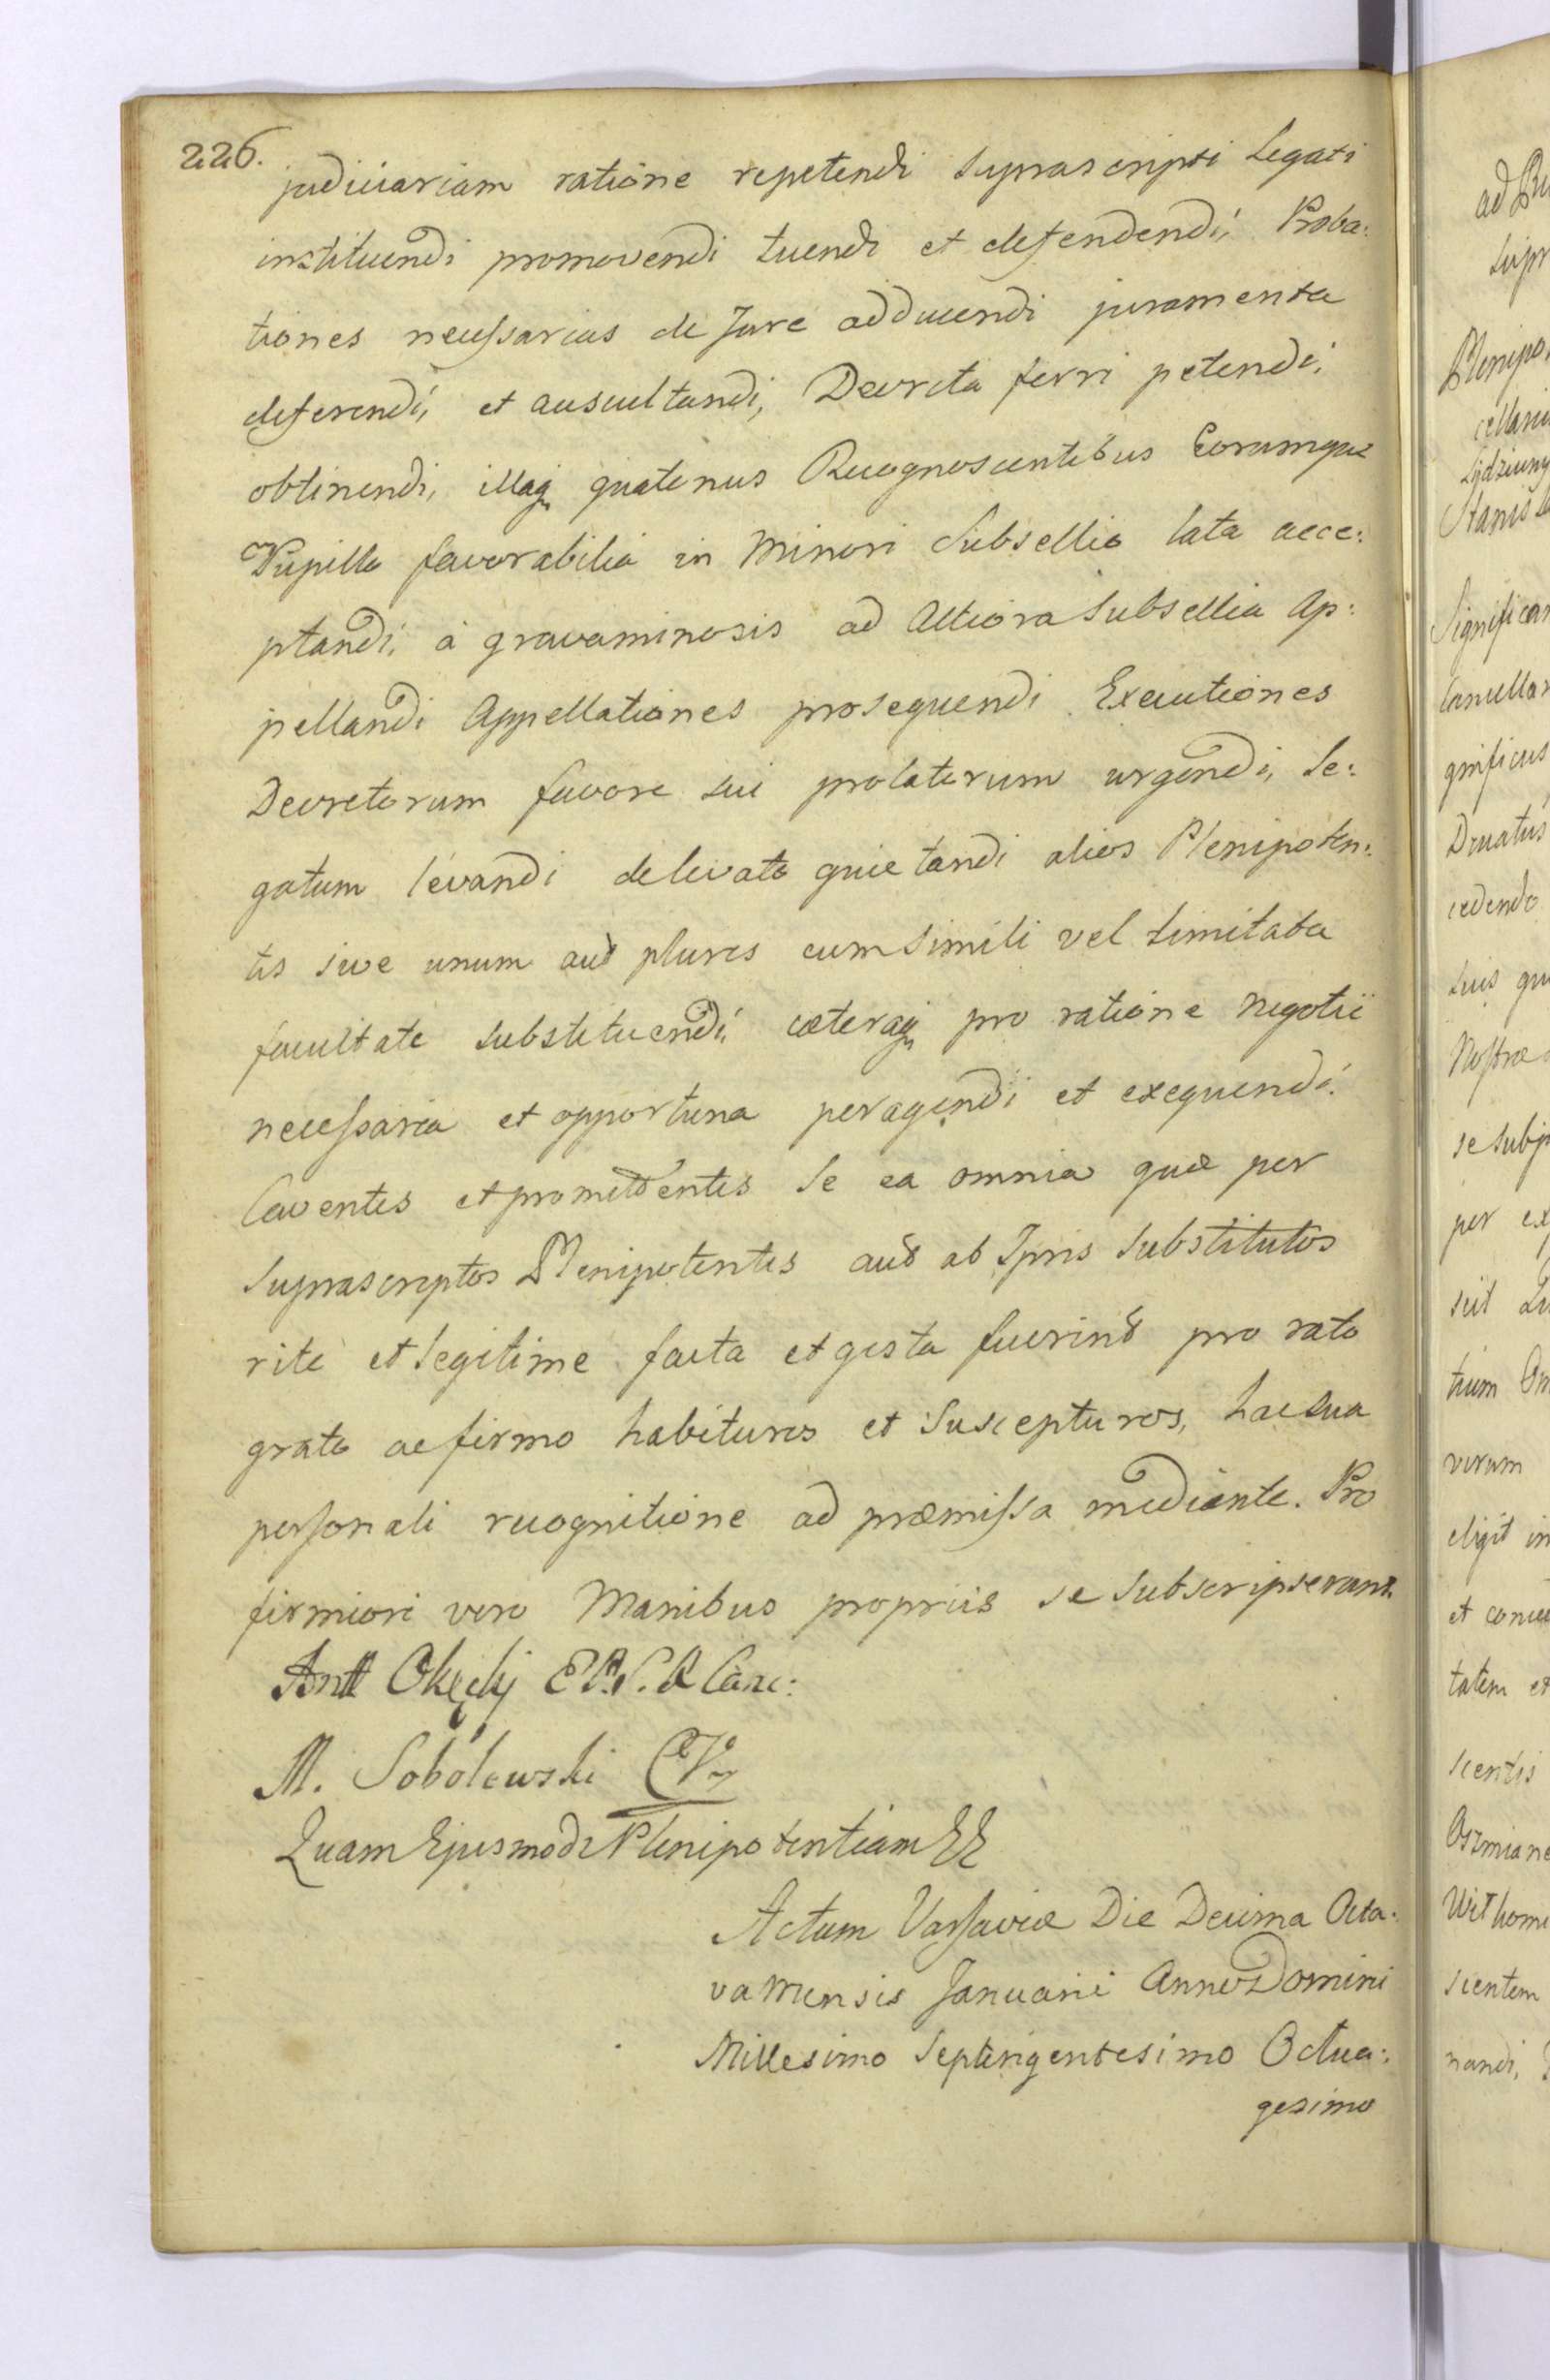 226.
judiciariam ratione repetendi suprascripti Legati
instituendi promovendi tuendi et defendendi, Proba:
tiones necessarias de Jure adducendi juramenta
deferendi, et auscultandi, Decreta ferri petendi,
obtinendi, illaq quatenus Recognoscentibus Eorumque
Pupillo favorabilia in Minori Subsellio lata acce:
ptandi, à gravaminosis ad Altiora Subsellia Ap:
pellandi Appellationes prosequendi Executiones
Decretorum favore sui prolatorum urgendi, Le:
gatum levandi de levato quietandi alios Plenipoten:
tes sive unum aut plures cum simili vel limitata
facultate substituendi, cæteraq pro ratione Negotii
necessaria et opportuna peragendi et exequendi.
Caventes et promittentes Se ea omnia quæ per
Suprascriptos Plenipotentes aut ab Ipsis Substitutos
rite et legitime facta et gesta fuerint pro rato
grato ac firmo habituros et Suscepturos, hac sua
personali recognitione ad præmissa mediante. Pro
firmiori vero Manibus propriis se subscripserant.
Ant Okęckj E.P. S. R Canc:
M. Sobolewski
Quam Ejusmodi Plenipotentiam
Actum Varsaviæ Die Decima Octa:
va Mensis Januarii Anno Domini
Millesimo Septingentesimo Octua:
gesimo
ad
Plenipo
Stanis
Significa
Cancellar
gnificus
cedendo
suis
Nostræ
se
per
verum
eligit in
et
tatem et
scentis
Oszmiane
scentem
nandi,